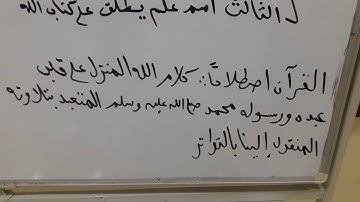 الثالث اسم علم يطلق على كتاب الله
القرآن اصطلاحًا: كلام الله المنزل على قلب
عبده ورسوله محمد صلى الله عليه وسلم المتعبد بتلاوته
المنقول إلينا بالتواتر